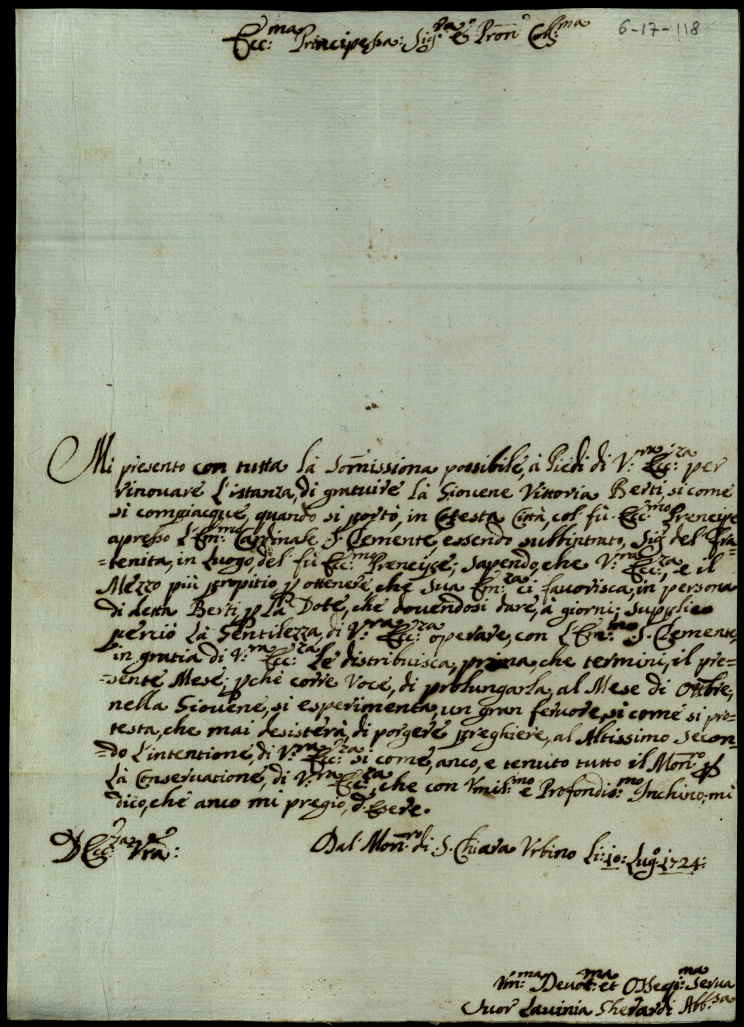 6-17-118
Ecc:ma Principessa: Sig:ra e Pron:
Mi presento con tutta la Som̃issiona possibile, à Piedi di V:ra Ecc:za per
rinovare l'istanza, di gratuire la Giovene Vittoria Berti, si come
si compiacque, quando si portò, in Cotesta Città, col fù Ecc:mo Prencipe
apresso l'Em:mo Cardinale S. Clemente, essendo subbintrato, Sig: del Fra-
-tenita, in Luogo, del fù Ecc:mo Prencipe; sapendo, che V:ra Ecc:za, e il
Mezzo più propitio p ottenere, che sua Em:za ci favorisca, in persona
di detta Berti, p la Dote, che dovendosi dare, à giorni; supplico
perciò la Gentilezza, di V:ra Ecc:za operare, con l'Em:mo S. Clemente,
in gratia di V:ra Ecc:za le distribuisca, prima, che termini, il pre-
-sente Mese; pche corre Voce, di prolungarla, al Mese di Ottbre,
nella Giovene, si esperimenta, un gran fervore, si come si pro-
testa, che mai desisterà, di porgere preghiere, al Altissimo secon-
-do l'intentione, di V:ra Ecc:za si come, anco, e tenuto tutto il Mon:ro p
la Conservatione, di V:ra Ecc:za, che con Vmilis:mo e Profondis:mo Inchino, mi
dico, che anco mi pregio, d'Esere.
D Ecc:za Vra:
Dal Mon:ro di S. Chiara Vrbino li: 10: Lug:o 1724:
Vm:ma Devot:ma et Osseq:ma Serva
Suor Lavinia Gherardi Abb:sa